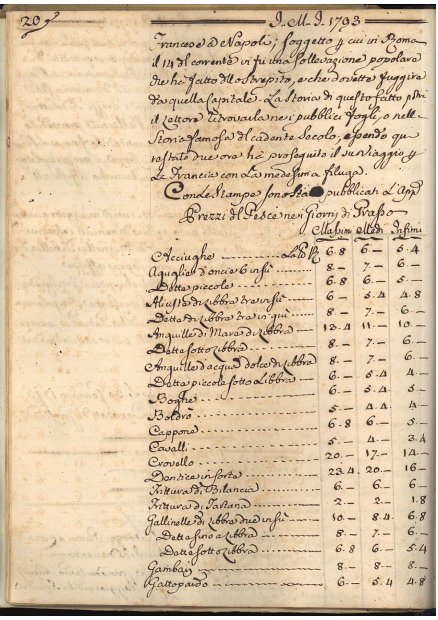 20 I. M. I. 1793
Francese Di Napoli; soggetto p cui in Roma
il 14 del corrente vi fu una sollevazione popolare
che hà fatto dello strepito, e che dovette fuggire
da quella Capitale. La Storia di questo fatto
il Lettore la trovarà nei pubblici fogli, o nella
Storia famosa del cadente Secolo;
restato due ore hà proseguito il suo Viaggio p
La Francia con La medesima filuga.
Con Le Stampe sono Stati pubblicati L
Prezzi del Pesce nei Giorni di Grasso
Massimi Medi Infimi
Acciughe 6.8 6.— 5.4
Aguglie d'oncie 6 in sù 8.— 7.— 6.—
Dette piccole 6.8 6.— 5.—
Aliuste di libbra tre in sù 6.— 5.4 4.8
Dette di libbra tre in giù 8.— 7.— 6.—
Anguille di Mare di libbra 13.4 11.— 10.—
Dette sotto libbra 8.— 7.— 6.—
Anguille d'acqua dolce di libbra 8.— 7.— 6.—
Dette piccole sotto Libbra 6.— 5.4 4.—
Boghe 6.— 5.4 5.—
Boldrò 5.— 4.4 4.—
Cappone 6.8 6.— 5.—
Cavalli 5.— 4.— 3.4
Crovello 20.— 17.— 14.—
Dentice in sorte 23.4 20.— 16.—
Frittura di Bilancia 6.— 6.— 6.—
Frittura di Tartana 2.— 2.— 1.8
Gallinelle di libbra due in sù 10.— 8.4 6.8
Dette fino a libbra 8.— 7.— 6.—
Dette sotto libbra 6.8 6.— 5.4
Gambari 8.— 8.— 8.—
Gattopardo 6.— 5.4 4.8